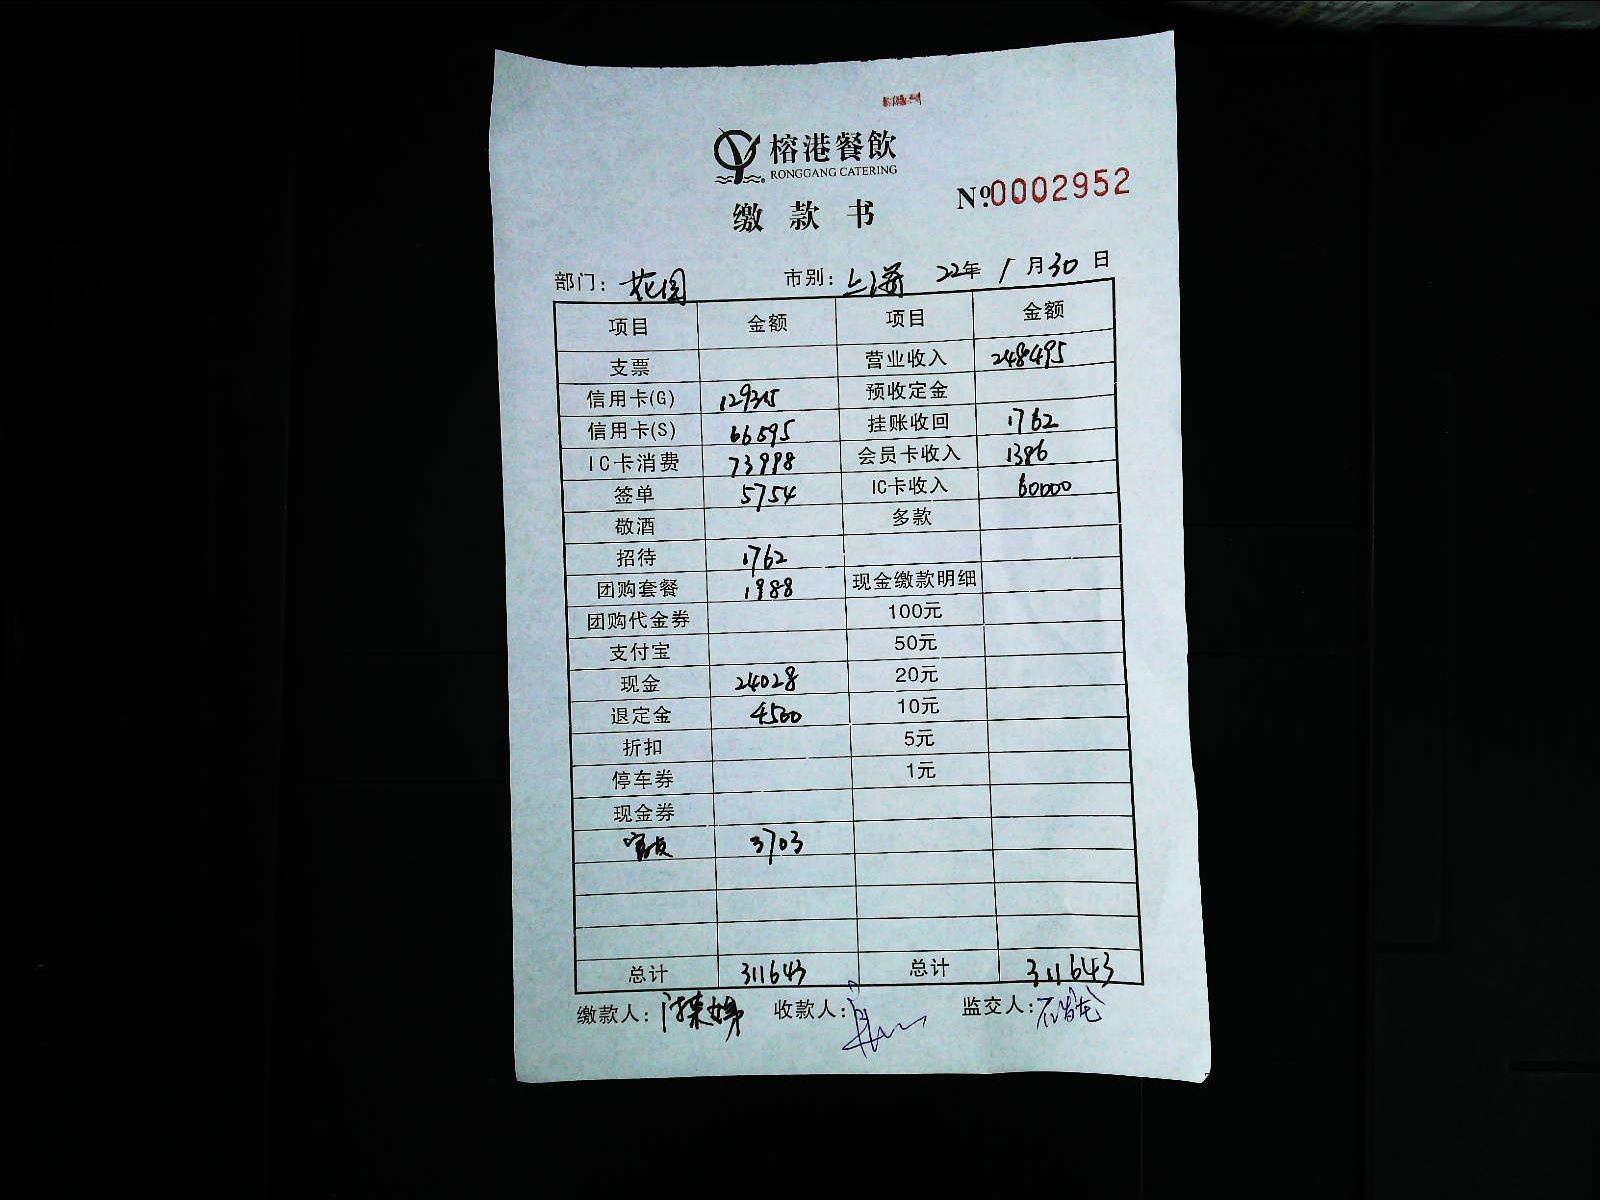 榕港餐飲
RONGGANG CATERING
缴款书
Nº.0002952
部门: 花园 市别: 上海 22年 1月30日
项目 金额 项目 金额
支票 营业收入 248495
信用卡(G) 129315 预收定金
信用卡(S) 66595 挂账收回 1762
IC卡消费 73998 会员卡收入 1386
签单 5754 IC卡收入 60000
敬酒 多款
招待 1762
团购套餐 1988 现金缴款明细
团购代金券 100元
支付宝 50元
现金 24028 20元
退定金 4500 10元
折扣 5元
停车券 1元
现金券
3703
总计 311643 总计 311643
缴款人: 收款人: 监交人: